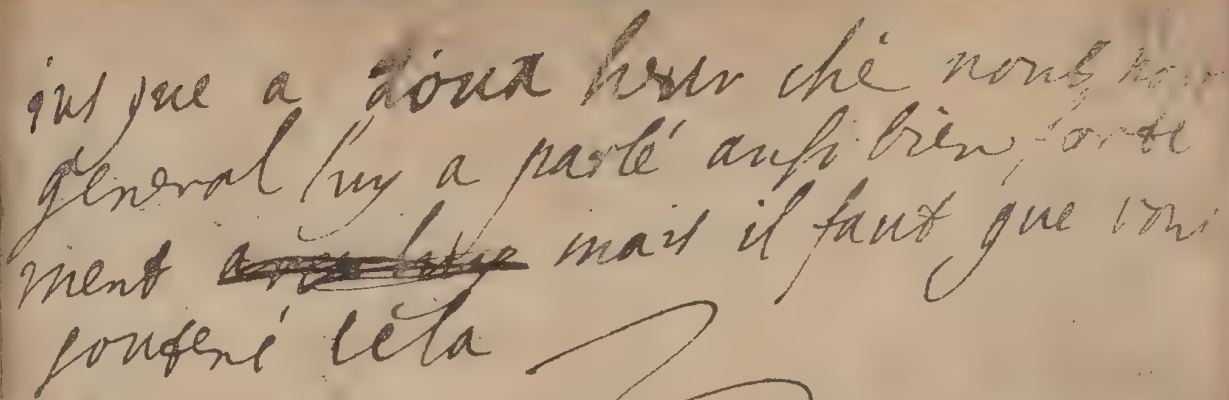 jusque a doux heur chè nous
general luy a parlé ausi bien forte
ment mais il faut que vous
soutené cèla